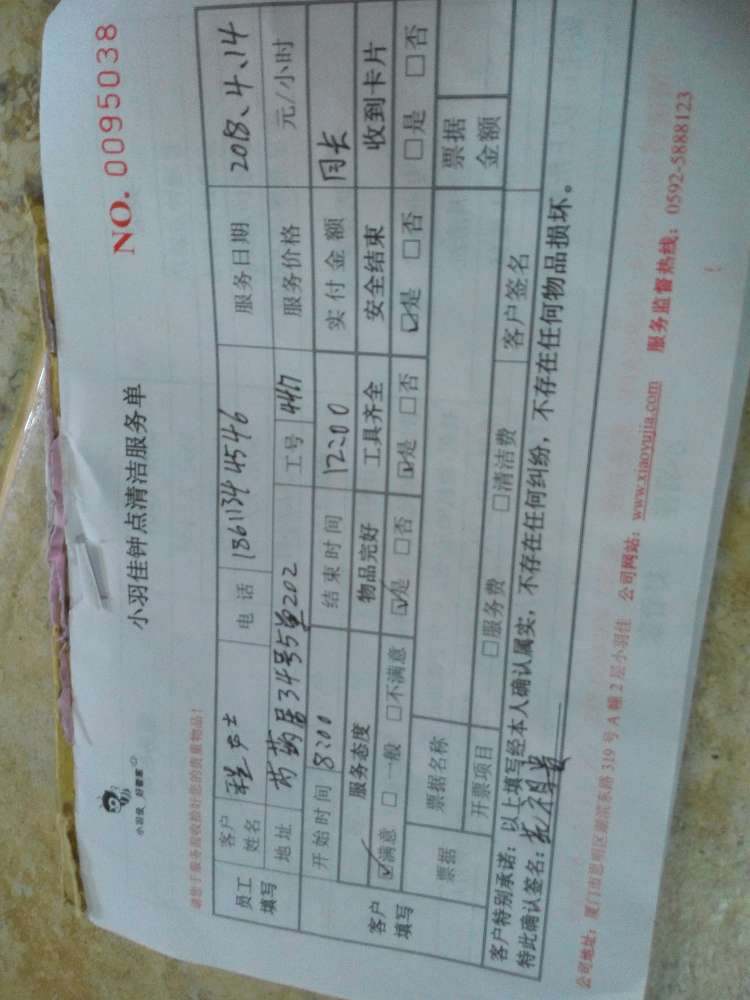 小羽佳 好管家
小羽佳钟点清洁服务单
NO. 0095038
请您于服务前收拾好您的贵重物品！
员工填写 客户姓名 程女士 电话 18611344546 服务日期 2018.4.14
地址 芍药居34号5单202 工号 4417 服务价格 元/小时
客户填写 开始时间 8:00 结束时间 12:00 实付金额
服务态度 物品完好 工具齐全 安全结束 收到卡片
☑满意 □一般 □不满意 ☑是 □否 ☑是 □否 ☑是 □否 □是 □否
票据 票据名称 票据金额
开票项目 □服务费 □清洁费 客户签名
客户特别承诺：以上填写经本人确认属实，不存在任何纠纷，不存在任何物品损坏。
特此确认签名：
公司地址：厦门市思明区湖滨东路 319 号 A 幢 2 层小羽佳 公司网站：www.xiaoyujia.com 服务监督热线：0592-5888123